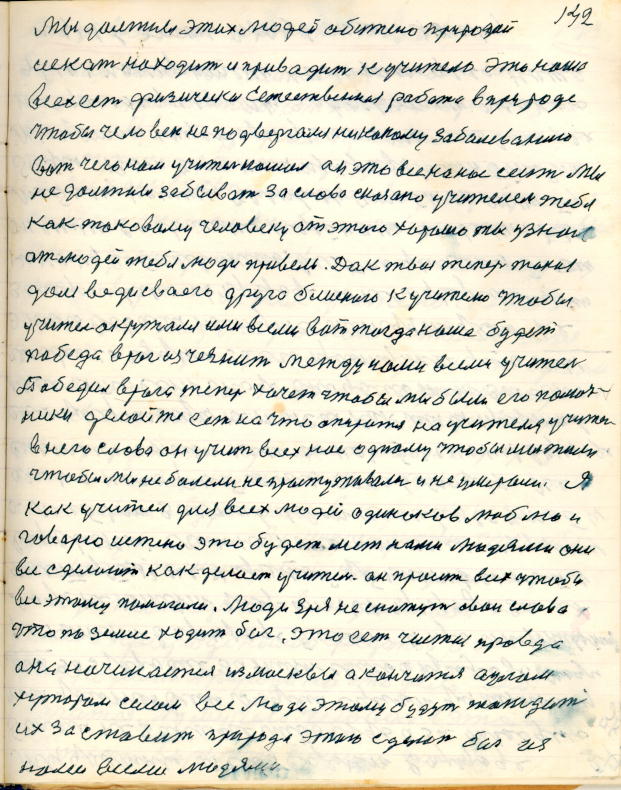 192
Мы должны этих людей обижено природой
искат находит и привадит к учителю это наша
всех ест физически Естественная работа в природе
чтобы человек не подвергался никакому заболеванию
Вот чего нам учител нашол он это все на нас сеит Мы
не должны забыват за слова сказано учителем тебя
как таковому человеку от этого хорошо ты узнал
от людей тебя люди привели. Дак твоя тепер такая
дол веди своего друго близкого к учителю чтобы
учител окружался ими всеми вот тогда наша будет
победа враг изчезнит между нами всеми учител
Победил врага тепер хочет чтобы мы были его помоч-
ники делойте сет на что опиратся на учителя учител
в него слова он учит всех нас одному чтобы мы жили
чтобы мы не болели не простуживали и не умерали. Я
как учител для всех людей одинаков люблю и
говарю истено это будет меж нами людями они
все сделоют как делает учител. он просит всех чтобы
все этому помогали. Люди зря не скажут свои слова
что по земле ходит бог. это сет чистая правда
она начинается из москвы а кончится аулом
хутором селом все люди этому будут
их заставит природа этого сделат бог из
нами всеми людями